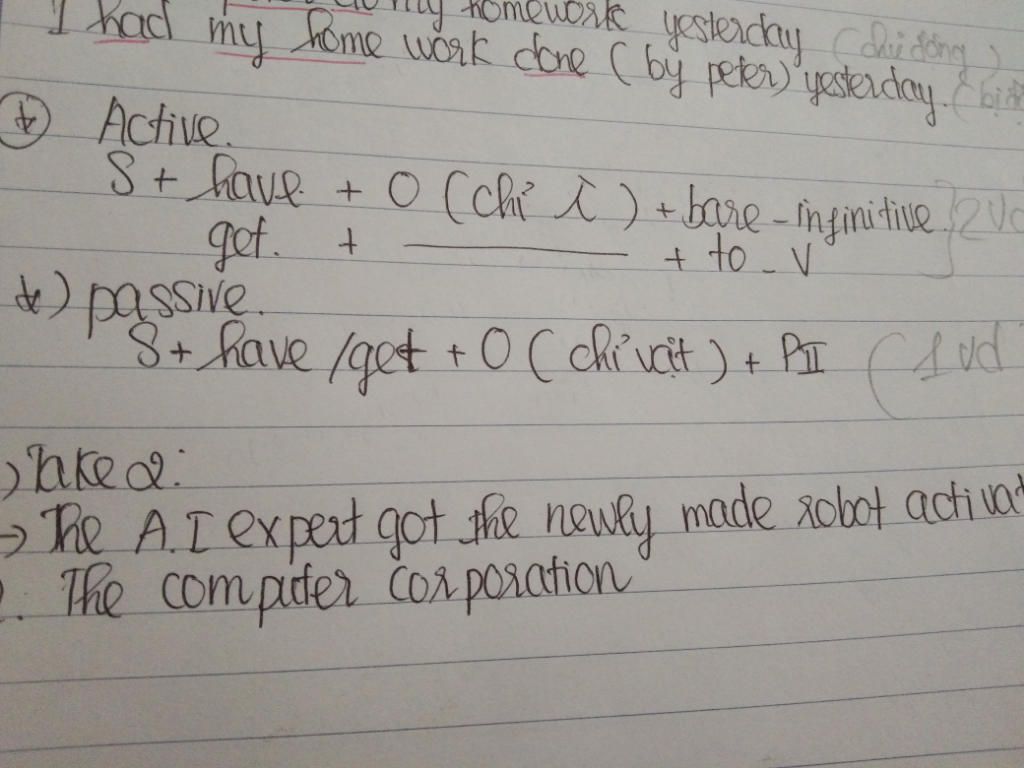 my homework yesterday (chủ động)
I had my home work done (by peter) yesterday.
Active.
S + have + O (chỉ ) + bare - infinitive. 2 Vd
get. + ——— + to - V
*) passive.
S + have /get + O (chỉ vật) + PII (1 vd
) Take 2:
→ The A.I expert got the newly made robot activat
. The computer corporation